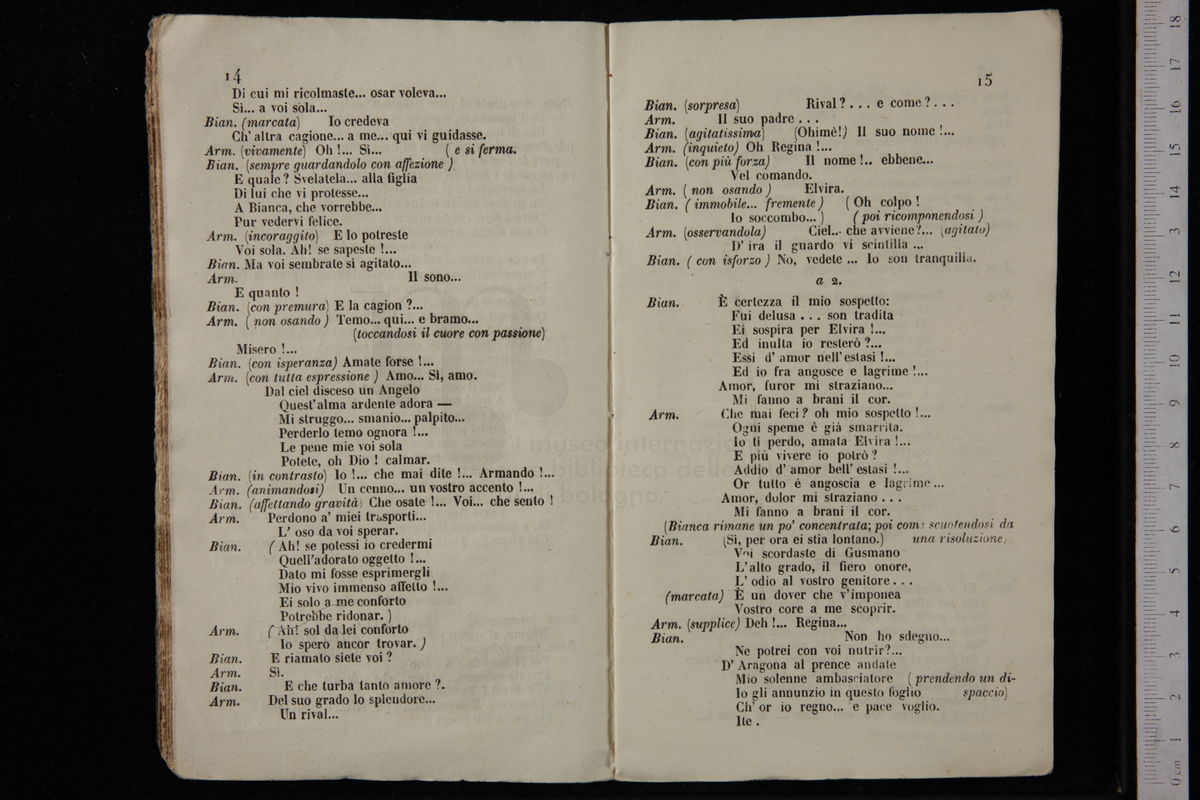 14
Di cui mi ricolmaste... osar voleva...
Sì... a voi sola...
Bian. (marcata) Io credeva
Ch' altra cagione... a me... qui vi guidasse.
Arm. (vivamente) Oh !... Sì... ( e si ferma.
Bian. (sempre guardandolo con affezione )
E quale ? Svelatela... alla figlia
Di lui che vi protesse...
A Bianca, che vorrebbe...
Pur vedervi felice.
Arm. (incoraggito) E lo potreste
Voi sola. Ah! se sapeste !...
Bian. Ma voi sembrate sì agitato...
Arm. Il sono...
E quanto !
Bian. (con premura) E la cagion ?...
Arm. ( non osando ) Temo... qui... e bramo...
(toccandosi il cuore con passione)
Misero !...
Bian. (con isperanza) Amate forse !...
Arm. (con tutta espressione ) Amo... Sì, amo.
Dal ciel disceso un Angelo
Quest'alma ardente adora —
Mi struggo... smanio... palpito...
Perderlo temo ognora !...
Le pene mie voi sola
Potete, oh Dio ! calmar.
Bian. (in contrasto) Io !... che mai dite !... Armando !...
Arm. (animandosi) Un cenno... un vostro accento !...
Bian. (affettando gravità) Che osate !... Voi... che sento !
Arm. Perdono a' miei trasporti...
L' oso da voi sperar.
Bian. ( Ah! se potessi io credermi
Quell'adorato oggetto !...
Dato mi fosse esprimergli
Mio vivo immenso affetto !...
Ei solo a me conforto
Potrebbe ridonar. )
Arm. ( Ah! sol da lei conforto
Io sperò ancor trovar. )
Bian. E riamato siete voi ?
Arm. Sì.
Bian. E che turba tanto amore ?.
Arm. Del suo grado lo splendore...
Un rival...
15
Bian. (sorpresa) Rival ? . . . e come ? . . .
Arm. Il suo padre . . .
Bian. (agitatissima) (Ohimè!) Il suo nome !...
Arm. (inquieto) Oh Regina !...
Bian. (con più forza) Il nome !.. ebbene...
Vel comando.
Arm. ( non osando ) Elvira.
Bian. ( immobile... fremente ) ( Oh colpo !
Io soccombo... ) ( poi ricomponendosi )
Arm. (osservandola) Ciel... che avviene?... (agitato)
D' ira il guardo vi scintilla ...
Bian. ( con isforzo ) No, vedete ... Io son tranquilla.
a 2.
Bian. È certezza il mio sospetto:
Fui delusa . . . son tradita
Ei sospira per Elvira !...
Ed inulta io resterò ?...
Essi d' amor nell' estasi !...
Ed io fra angosce e lagrime !...
Amor, furor mi straziano...
Mi fanno a brani il cor.
Arm. Che mai feci ? oh mio sospetto !...
Ogni speme è già smarrita.
Io ti perdo, amata Elvira !...
E più vivere io potrò ?
Addio d' amor bell' estasi !...
Or tutto é angoscia e lagrime ...
Amor, dolor mi straziano . . .
Mi fanno a brani il cor.
(Bianca rimane un po' concentrata; poi come scuotendosi da
Bian. (Sì, per ora ei stia lontano.) una risoluzione)
Voi scordaste di Gusmano
L' alto grado, il fiero onore,
L' odio al vostro genitore . . .
(marcata) È un dover che v'imponea
Vostro core a me scoprir.
Arm. (supplice) Deh !... Regina...
Bian. Non ho sdegno...
Ne potrei con voi nutrir?...
D' Aragona al prence andate
Mio solenne ambasciatore ( prendendo un di-
Io gli annunzio in questo foglio spaccio)
Ch' or io regno... e pace voglio.
Ite .
museo internazio
biblioteca della
bologna